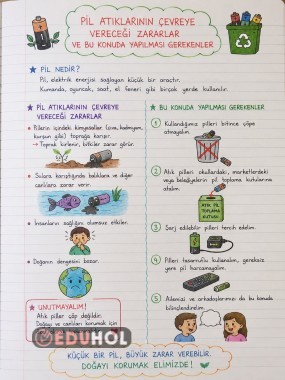 PİL ATIKLARININ ÇEVREYE
VERECEĞİ ZARARLAR
VE BU KONUDA YAPILMASI GEREKENLER
PİL NEDİR?
Pil, elektrik enerjisi sağlayan küçük bir araçtır.
Kumanda, oyuncak, saat, el feneri gibi birçok yerde kullanılır.
PİL ATIKLARININ ÇEVREYE
VERECEĞİ ZARARLAR
Pillerin içindeki kimyasallar (cıva, kadmiyum,
kurşun gibi) toprağa karışır.
→ Toprak kirlenir, bitkiler zarar görür.
Sulara karıştığında balıklara ve diğer
canlılara zarar verir.
İnsanların sağlığını olumsuz etkiler.
Doğanın dengesini bozar.
UNUTMAYALIM!
Atık piller çöp değildir.
Doğayı ve canlıları korumak için
BU KONUDA YAPILMASI GEREKENLER
1 Kullandığımız pilleri bitince çöpe
atmayalım.
2 Atık pilleri okullardaki, marketlerdeki
veya belediyelerin pil toplama kutularına
atalım.
ATIK PİL
TOPLAMA
KUTUSU
3 Şarj edilebilir pilleri tercih edelim.
4 Pilleri tasarruflu kullanalım, gereksiz
yere pil harcamayalım.
5 Ailemizi ve arkadaşlarımızı da bu konuda
bilinçlendirelim.
EDUHOL
KÜÇÜK BİR PİL, BÜYÜK ZARAR VEREBİLİR.
DOĞAYI KORUMAK ELİMİZDE!